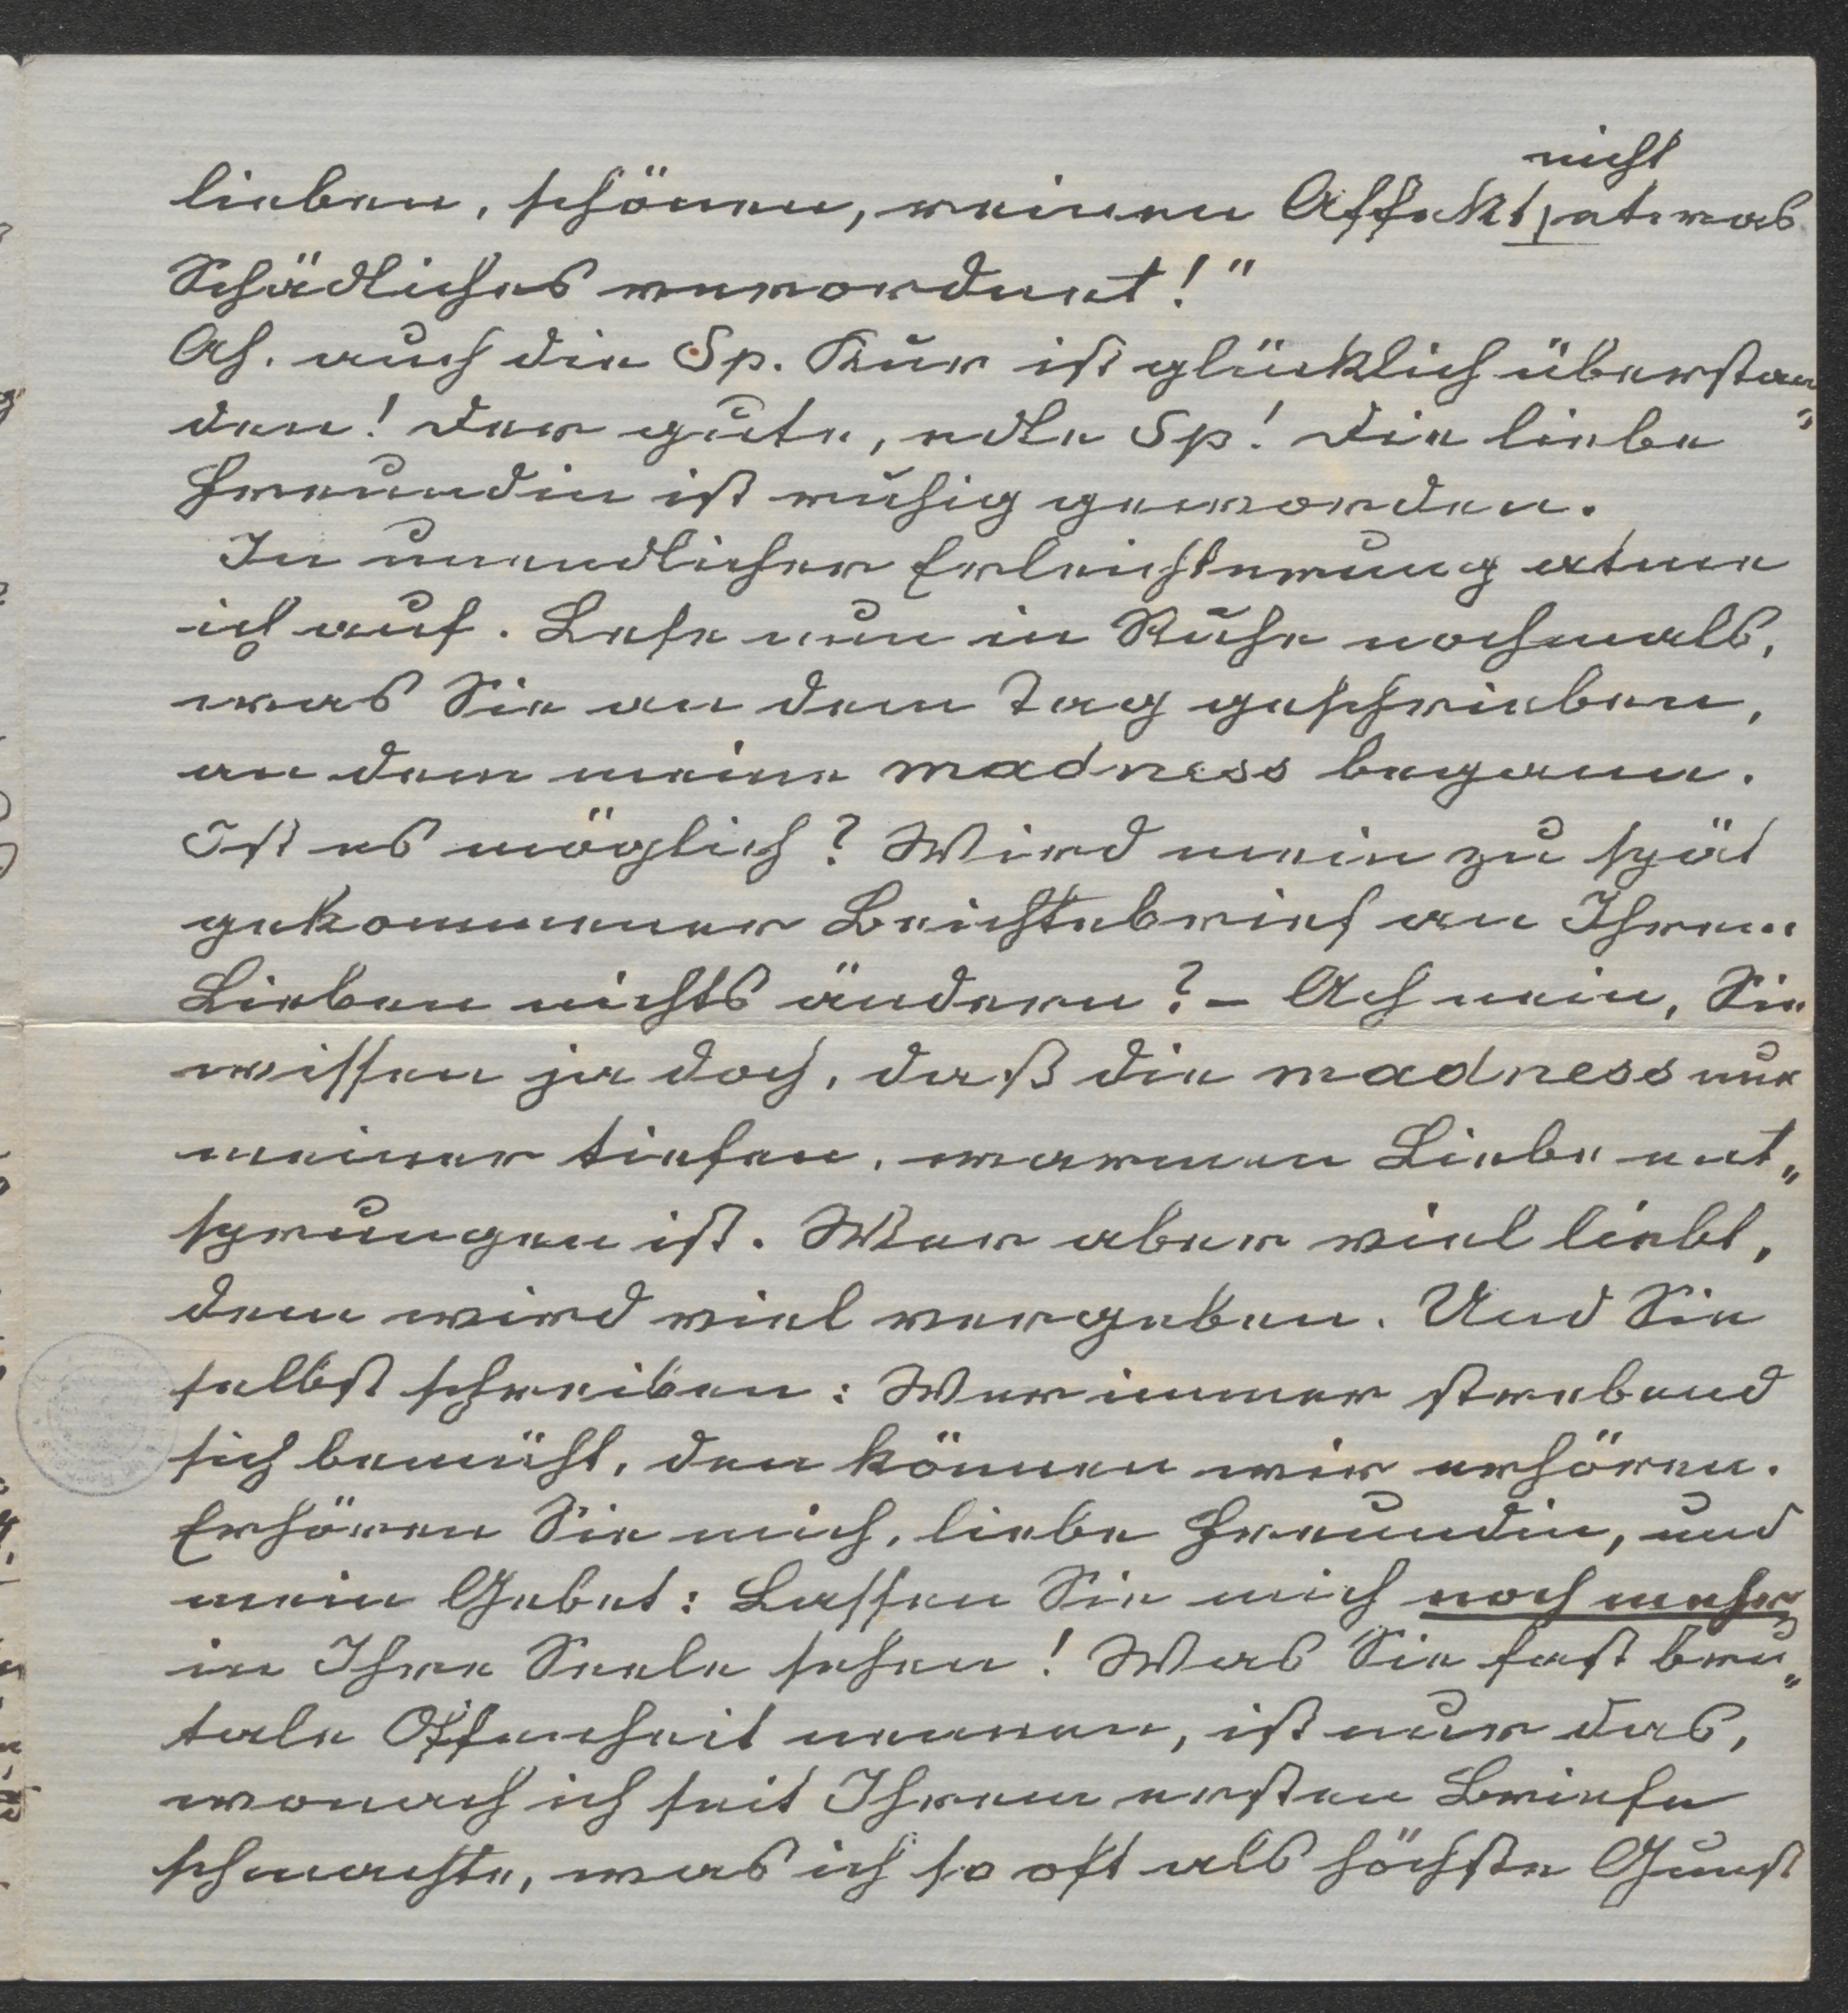 nicht
lieben, schönen, reinen Affekt etwas
Schädliches verordnet!"
Ah. auch die Sp. Kur ist glücklich überstan„
den! Der gute, edle Sp! Die liebe
Freundin ist ruhig geworden.
In unendlicher Erleichterung atme
ich auf. Lese nun in Ruhe nochmals,
was Sie an dem Tag geschrieben,
an dem meine madness begann.
Ist es möglich? Wird mein zu spät
gekommener Beichtebrief an Ihrem
Lieben nichts ändern? – Ach nein, Sie
wissen ja doch, daß die madness nur
meiner tiefen, warmen Liebe ent„
sprungen ist. Wer aber viel liebt,
dem wird viel vergeben. Und Sie
selbst schreiben: Wer immer strebend
sich bemüht, den können wir erhören.
Erhören Sie mich, liebe Freundin, und
mein Gebet: Lassen Sie mich noch mehr
in Ihre Seele sehen! Was Sie fast bru„
tale Offenheit nennen, ist nur das,
wonach ich seit Ihrem ersten Briefe
schmachte, was ich so oft als höchste Gunst